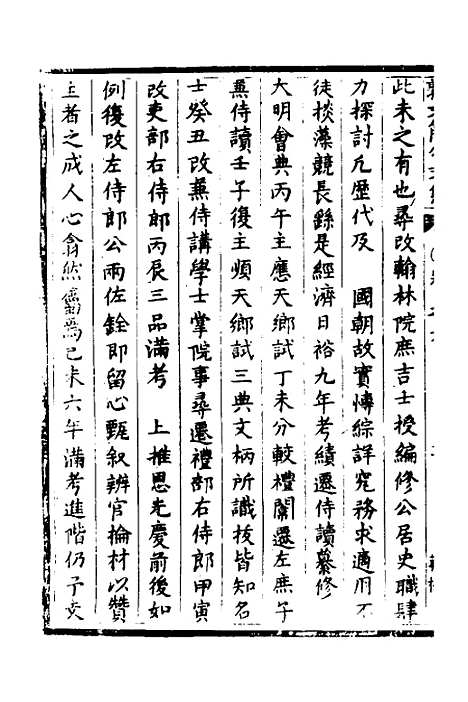 此未之有也尋改翰林院庶吉士授編修公居史職肆
力探討凢歷代及　國朝故實博綜詳究務求適用不
徒掞藻競長繇是經濟日裕九年考績遷侍讀纂修
大明會典丙午主應天鄉試丁未分較禮闈遷左庶子
兼侍讀壬子復主順天鄉試三典文柄所識拔皆知名
士癸丑改兼侍講學士掌院事尋遷禮部右侍郎甲寅
改吏部右侍郎丙辰三品滿考　上推恩先慶前後如
例復改左侍郎公兩佐銓即留心甄叙辨官掄材以贊
主者之成人心翕然焉己未六年滿考進階仍予文